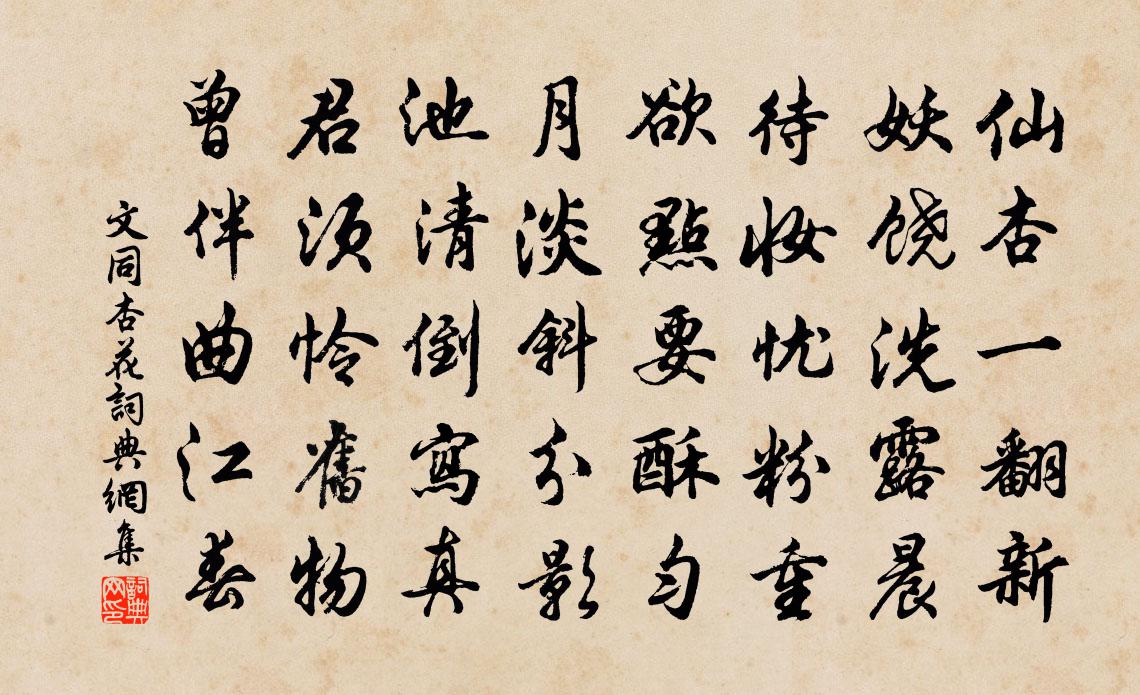 仙杏一翻新
妖饶洗露晨
待妆忧粉重
欲點要酥匀
月淡斜分影
池清倒寫真
君须怜舊物
曾伴曲江春
文同杏花詞典網集
詞典网印